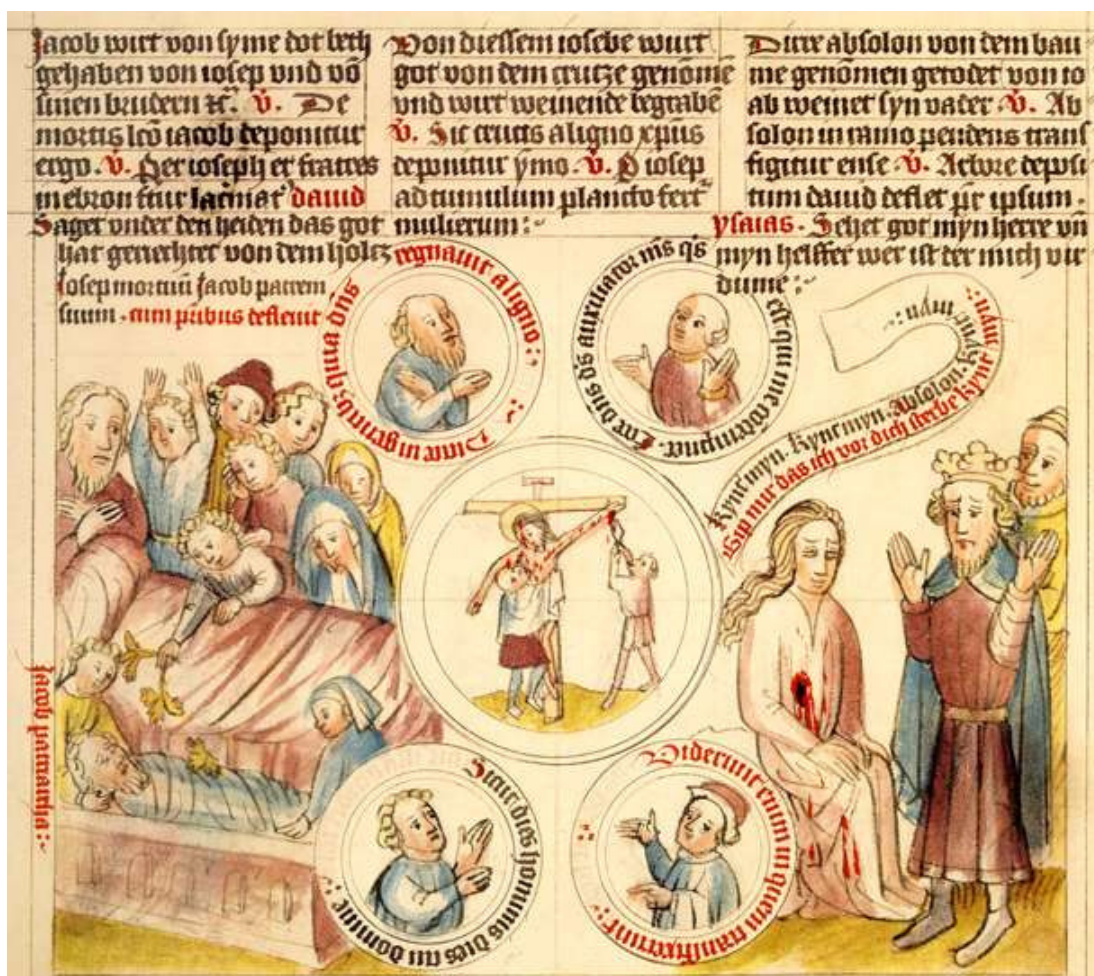 Jacob wirt von syme dot beth
gehaben von iosep vnd võ
sinen brudern ꝛc̃. v̇. De
mortis lcõ iacob deponitur
ergo. v̇. Per ioseph et fratres
in ebron fertur
dauid
Saget vnder den heiden das got
hat gerrechtet von dem holtz
Von diessem iosebe wurt
got von dem crutze genõmẽ
vnd wirt weinende begrabẽ
v̇. Sic crucis aligno xp̃us
deponitur ymo. v̇. O iosep
ad tumulum plancto fert
mulierum :~
Dirre absolon von dem bau
me genõmen getodet von io
ab weinet syn vater v̇. Ab
solon in ramo pendens trans
figitur ense v̇. Arbore deposi
tum dauid deflet pr̃ ipsum.
ysaias. Sehet got myn herre vñ
myn helffer wer ist der mich vir
dume :~
Iosep mortuũ Jacob patrem
suum. cum fr̃ibus defleuit
Dicite in gentib̃ quia dñs regnauit aligno :~
Ecce dñs d̃s auxiliator m̃s q̃s est qui me contempnet
Kynt myn. Kynt myn. Absolon. Kynt myn :~
Gip mir das ich vor dich sterbe kynt myn :~
Jacob patriarcha :~
Sicut dies hominis dies tui domine :~
Viderunt eum in quem transfixerunt :~